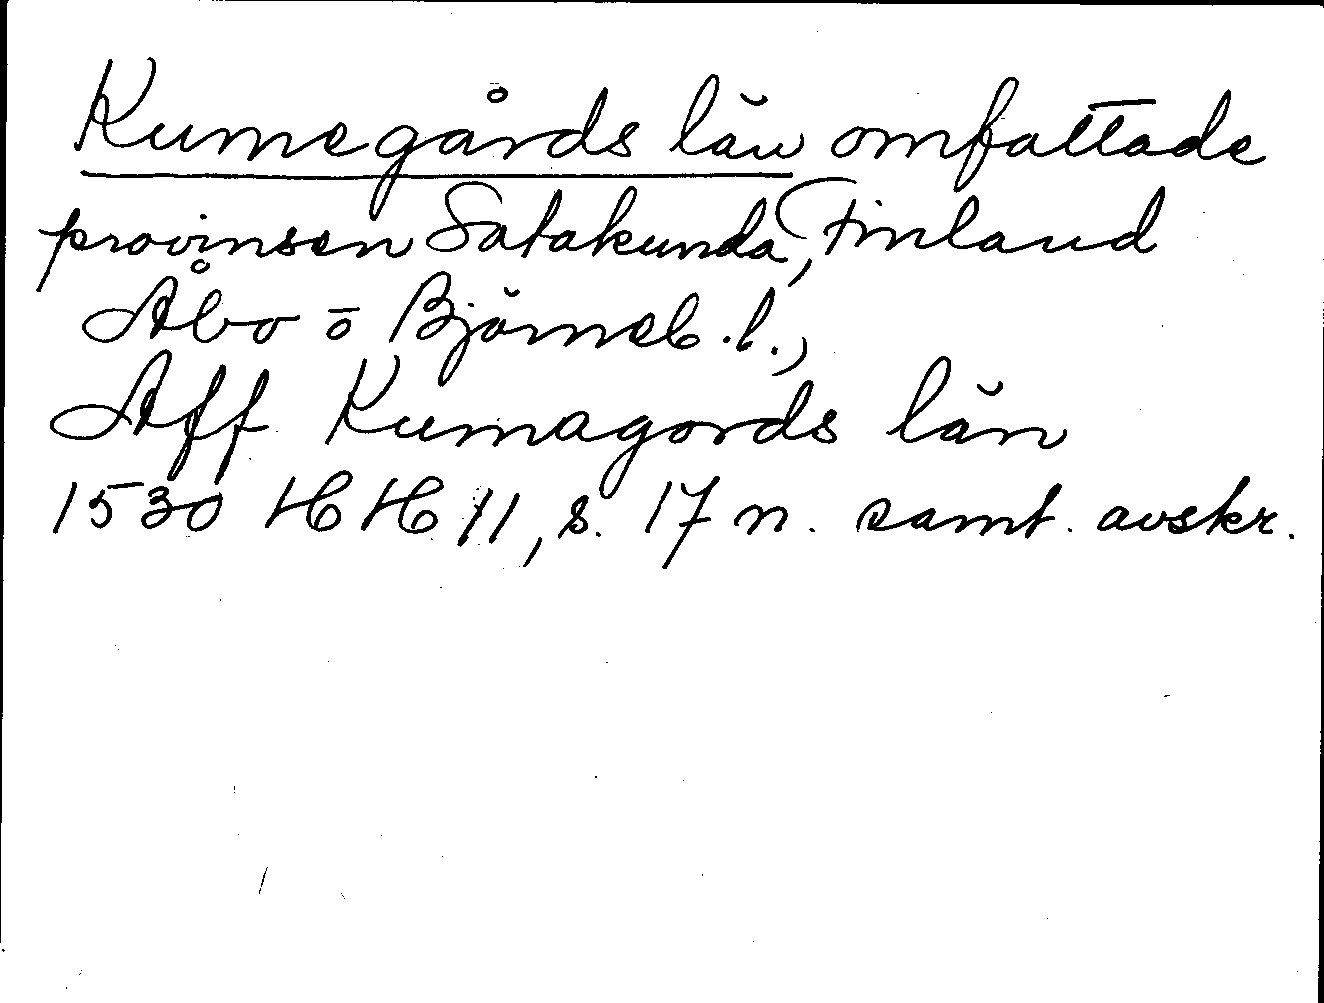 Kumegårds län omfattade
provinsen Satakunda, Finland
Åbo o Björneb. l.,
Aff Kumagords län
1530 HH 11, s. 17 n. samt. avskr.